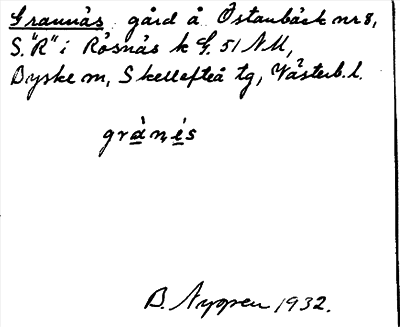 Grannäs gård å Östanbäck nr 8,
S. "R" i Rösnäs k G. 51 NU,
Byske m, Skellefteå tg, Västerb. l.
gràn,és
B. Nygren 1932.